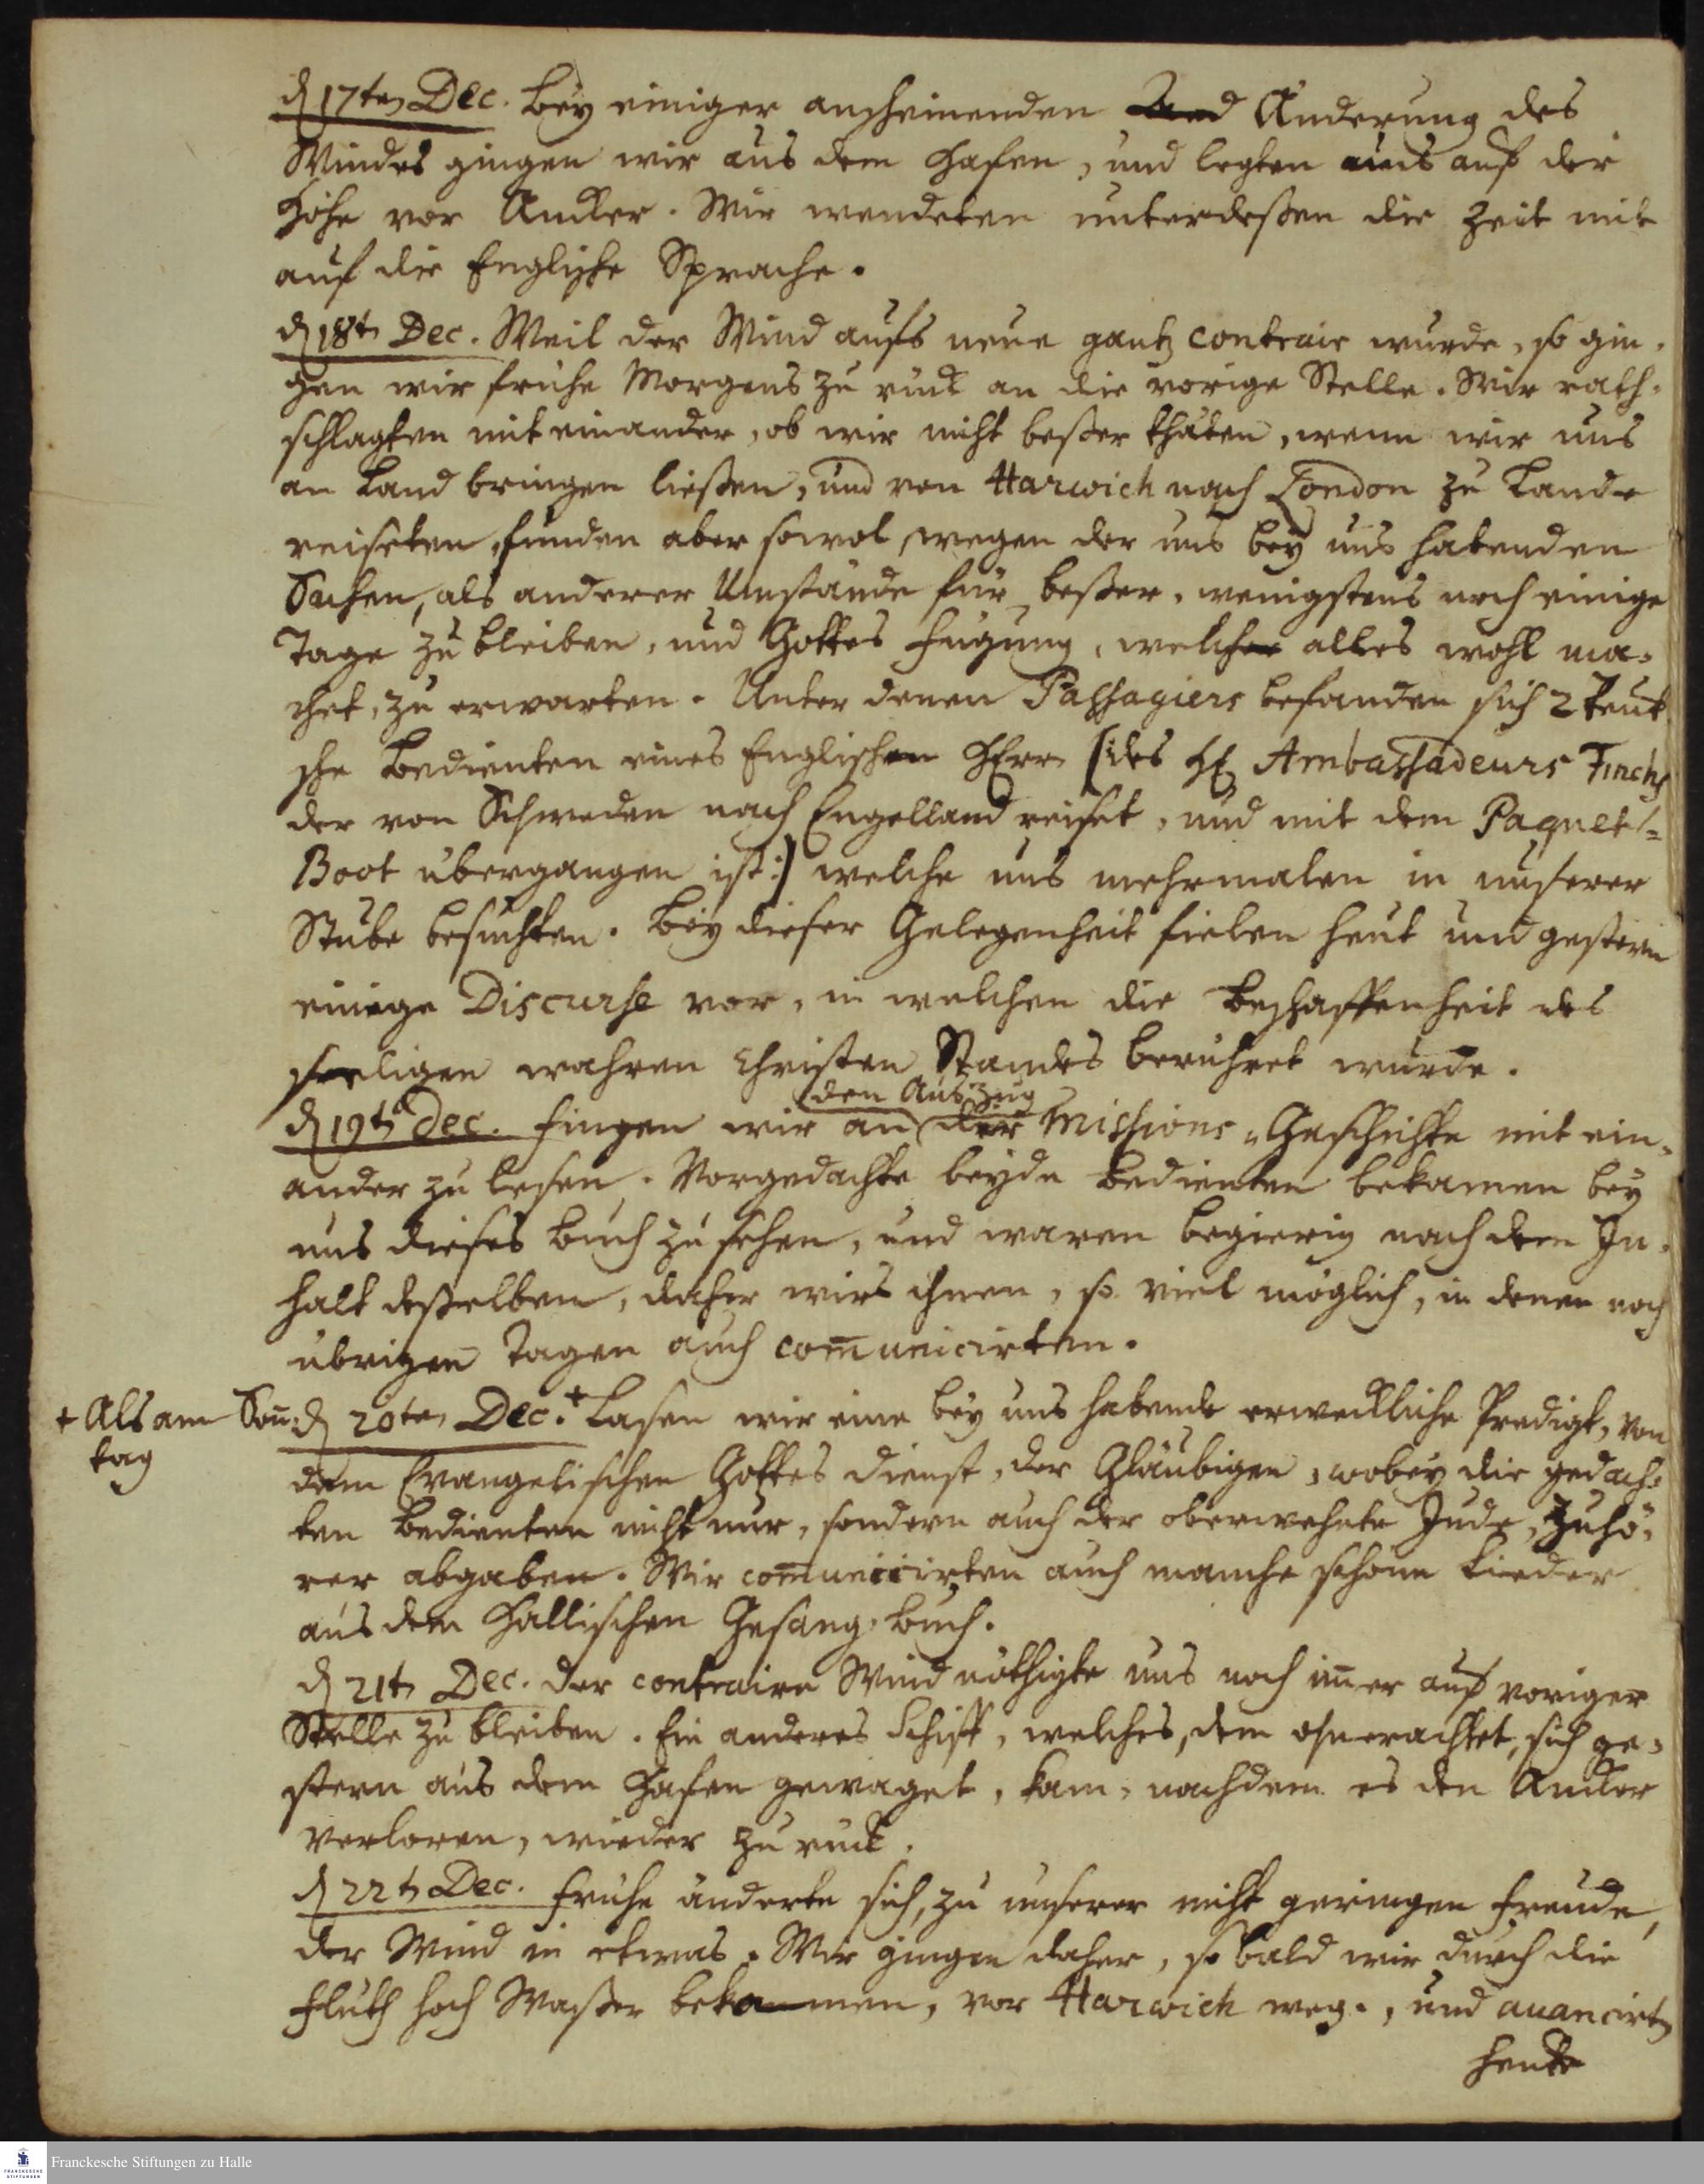 d 17ten Dec. Bey einiger anscheinenden And Änderung des
Windes gingen wir aus dem Hafen, und legten uns auf der
Höhe vor Ancker. Wir wendeten unterdeßen die Zeit mit
auf die Englische Sprache.
d 18ten Dec. Weil der Wind aufs neue gantz contrair wurde, so gin-
gen wir frühe Morgens zu rück an die vorige Stelle. Wir rath-
schlagten mit einander, ob wir nicht beßer thäten, wenn wir uns
an Land bringen ließen, und von Harwich nach London zu Lande
reiseten, funden aber sowol wegen der uns bey uns habenden
Sachen, als anderer Umstände für beßer, wenigstens noch einige
Tage zu bleiben, und Gottes Fügung, welcher alles wohl ma-
chet, zu erwarten. Unter denen Passagiers befanden sich 2 teut
sche Bedienten eines Englischen Herrn (:des H. Ambassadeurs Finchs
der von Schweden nach Engelland reiset, und mit dem Paquet-
Boot übergangen ist:) welche uns mehrmalen in unserer
Stube besuchten. Bey dieser Gelegenheit fielen heut und gestern
einige Discurse vor, in welchen die Beschaffenheit des
seeligen wahren Christen Standes berühret wurde.
den Auszug
d 19ten Dec. fingen wir an der Missions-Geschichte mit ein-
ander zu lesen. Vorgedachte beyde Bedienten bekamen bey
uns dieses Buch zu sehen, und waren begierig nach dem In-
halt deßelben, daher wirs ihnen, so viel möglich, in denen noch
übrigen Tagen auch com̅unicirten.
+ Als am Son̅-
tag
d 20ten Dec. + Lasen wir eine bey uns habende erweckliche Predigt, von
dem Evangelischen Gottes dienst, der Gläubigen, wobey die gedach-
ten Bedienten nicht nur, sondern auch der oberwehnte Jude, Zuhö-
rer abgaben. Wir com̅unicirten auch manche schöne Lieder
aus dem Hallischen Gesang-Buch.
d 21ten Dec. Der contraire Wind nöthigte uns noch im̅er auf voriger
Stelle zu bleiben. Ein anderes Schiff, welches, dem ohnerachtet, sich ge-
stern aus dem Hafen gewaget, kam, nachdem es den Ancker
verloren, wieder zu rück.
d 22ten Dec. Frühe änderte sich, zu unserer nicht geringen Freude,
der Wind in etwas. Wir gingen daher, so bald wir durch die
Fluth hoch Waßer bekamen, vor Harwich weg, und avancirten
heute
Franckesche Stiftungen zu Halle